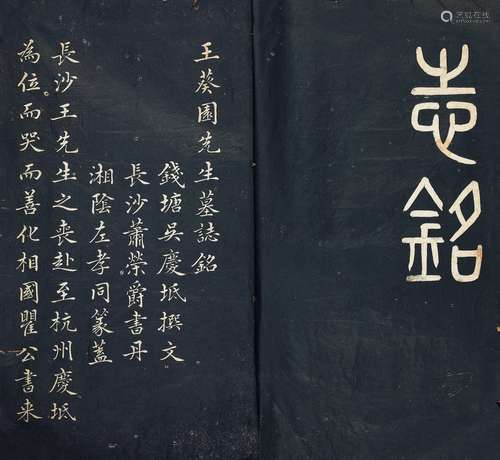 志銘
王葵園先生墓誌銘
錢塘吳慶坻撰文
長沙蕭榮爵書丹
湘陰左孝同篆蓋
長沙王先生之喪赴至杭州慶坻
為位而哭而善化相國瞿公書来